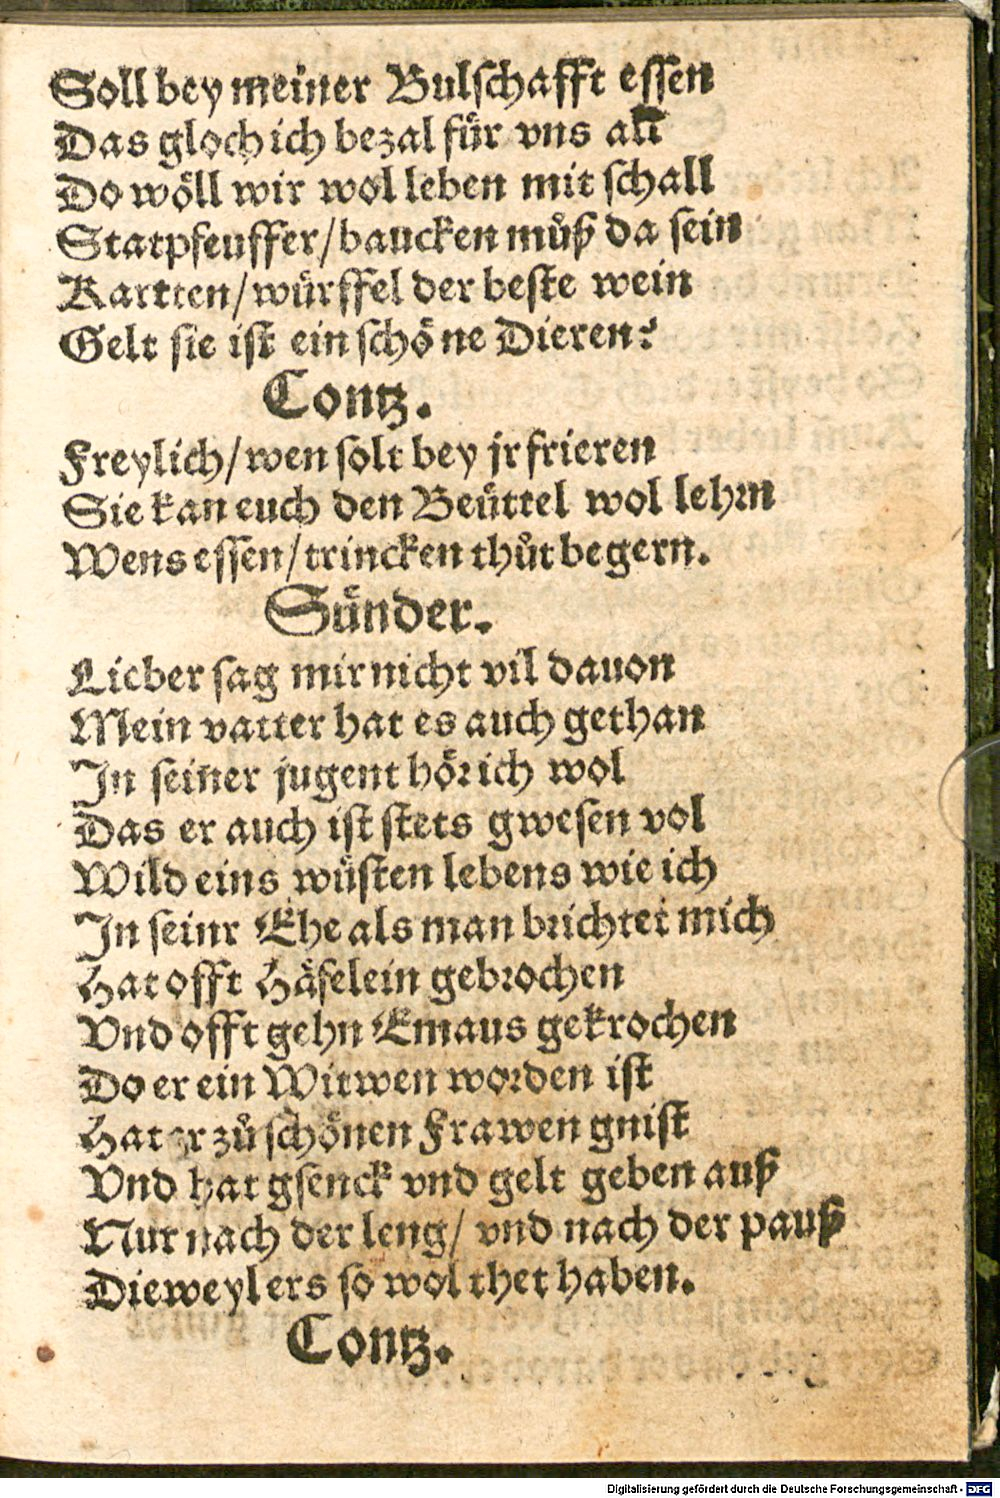 Soll bey meiner Bulschafft essen
Das gloch ich bezal für vns all
Do wöll wir wol leben mit schall
Statpfeuffer/baucken můß da sein
Kartten/würffel der beste wein
Gelt sie ist ein schöne Dieren?
Contz.
Freylich/wen solt bey jr frieren
Sie kan euch den Beüttel wol lehrn
Wens essen/trincken thůt begern.
Sünder.
Lieber sag mir nicht vil dauon
Mein vatter hat es auch gethan
In seiner jugent hör ich wol
Das er auch ist stets gwesen vol
Wild eins wüsten lebens wie ich
In seinr Ehe als man brichtet mich
Hat offt Häselein gebrochen
Vnd offt gehn Emaus gekrochen
Do er ein Witwen worden ist
Hat er zů schönen Frawen gnist
Vnd hat gsenck vnd gelt geben auß
Nur nach der leng/ vnd nach der pauß
Dieweyl ers so wol thet haben.
Contz.
Digitalisierung gefördert durch die Deutsche Forschungsgemeinschaft - DFG